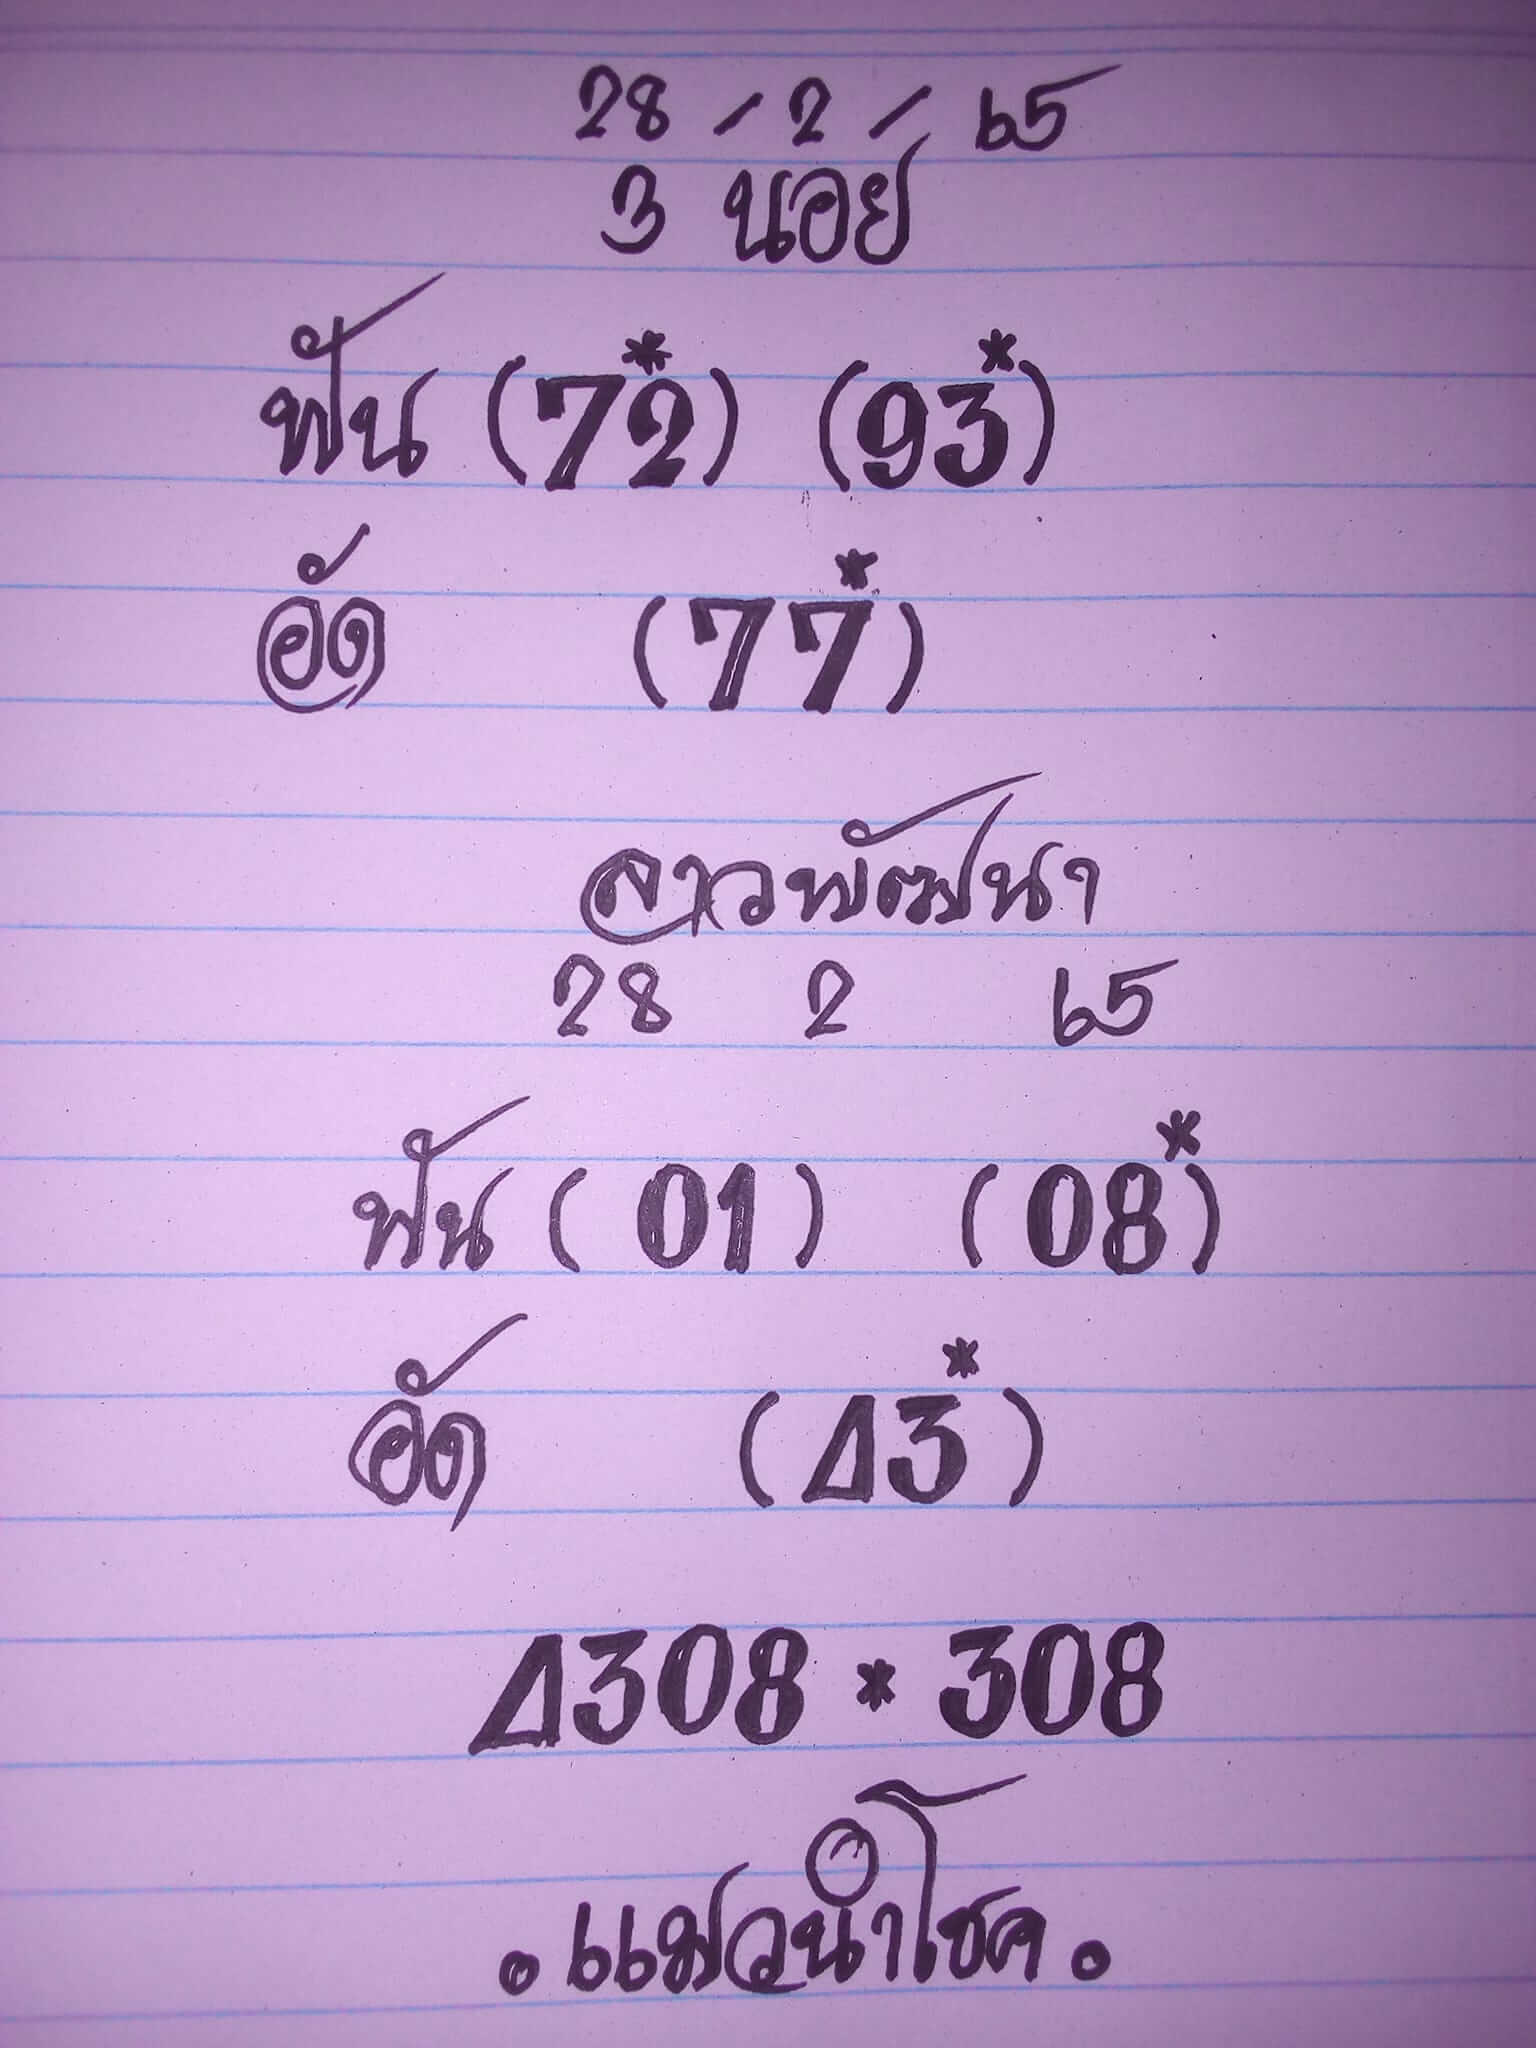 28 - 2 - 65
3 น๊อย
ฟัน (72*) (93*)
อัด (77*)
ลาวพัฒนา
28 2 65
ฟัน (01) (08*)
อัด (Δ3*)
Δ308 * 308
.แมวนำโชค.